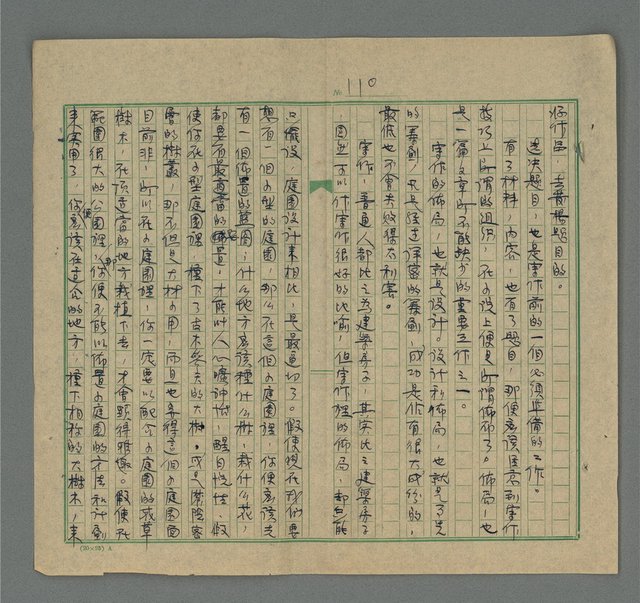 No 110
好作品,去發揮題目的。
選決題目,也是寫作前的一個必須準備的工作。
有了材料,內容,也有了題目,那便應該注意到寫作
技巧上所謂的組織,在小說上便是所謂佈局了。佈局,也
是一篇文章所不能缺少的重要工作之一。
寫作的佈局,也就是設計。設計和佈局,也就是事先
的策劃,只是經過詳密的策劃,成功是作有很大成份的,
最低也不會失敗得太利害。
寫作,普通人都比之為建築房子,其實比之建築房子
,固然可以作寫作很好的比喻,但寫作裡的佈局,卻只能
以擺設,庭園設計來相比,是最適切了。假使現在我們要
想有一個小型的庭園,那么在這個小庭園裡,你便應該先
有一個佈置的藍圖,什么地方應該種什么樹,栽什么花,
都是有最適當的佈置,才能以人心曠神怡,醒目悅性,假
使你在小型庭園裡,種下了古木參天的大樹,或是密陰密
層的樹叢,那不但是大材小用,而且也弄得這個小庭園面
目前非,所以在小庭園裡,你一定要以配合小庭園的咸草
樹木,在頂適當的地方栽植下去,才會顯得雅緻。假使在
範圍很大的公園裡,那你便不能以佈置小庭園的方法和計劃
來實用了,你便應該在適合的地方,種下相稱的大樹木,來
(20×25) A